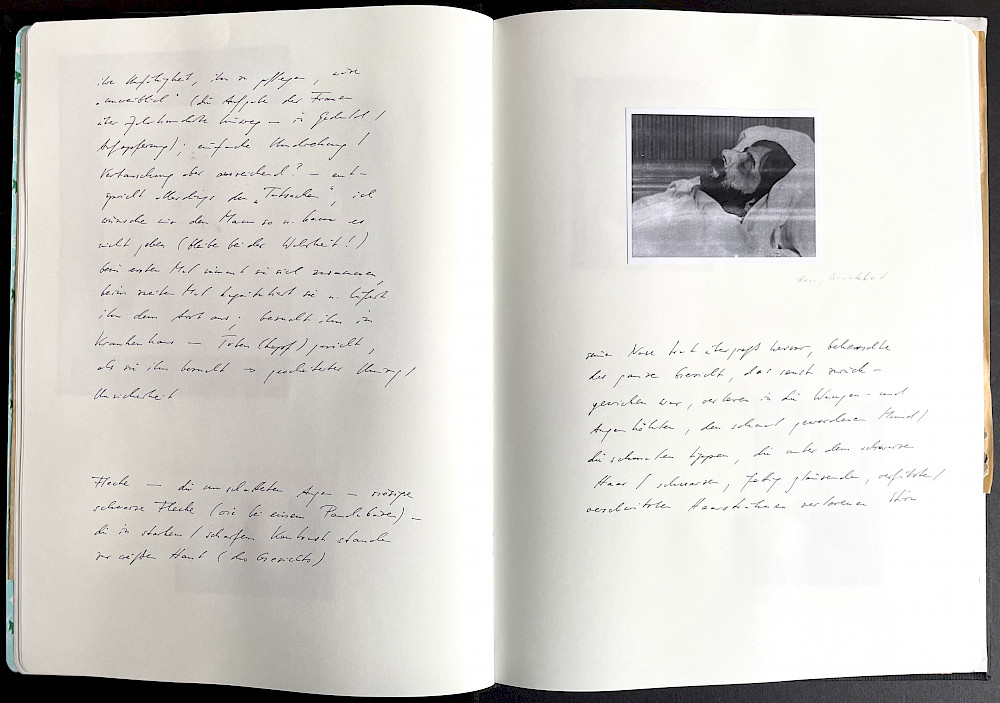 ihre Unfähigkeit, ihn zu pflegen, wäre
"unweiblich" (die Aufgabe der Frauen
über Jahrhunderte hinweg – in Geduld /
Aufopferung); einfache Umdrehung /
Vertauschung aber ausreichend? – ent-
spricht allerdings den "Tatsachen", ich
wünsche mir den Mann so u. kann es
nicht geben (bleibe bei der Wahrheit!)
beim ersten Mal nimmt sie sich zusammen,
beim zweiten Mal kapituliert sie u. liefert
ihn dem Arzt aus; besucht ihn im
Krankenhaus – Toten(kopf)gesicht,
als sie ihn besucht →
Unsicherheit
Flecke – die umschatteten Augen – riesige
schwarze Flecke (wie bei einem Pandabären) –
die in starken / scharfen Kontrast standen
zur weißen Haut (des Gesichts)
seine Nase trat übergroß hervor, beherrschte
das ganze Gesicht, das sonst zurück-
gewichen war, verloren in die Wangen- und
Augenhöhlen, den schmal gewordenen Mund /
die schmalen Lippen, die unter dem schwarzen
Haar / schwarzen, fettig glänzenden, verfilzten /
verschwitzten Haarsträhnen verlorene Stirn